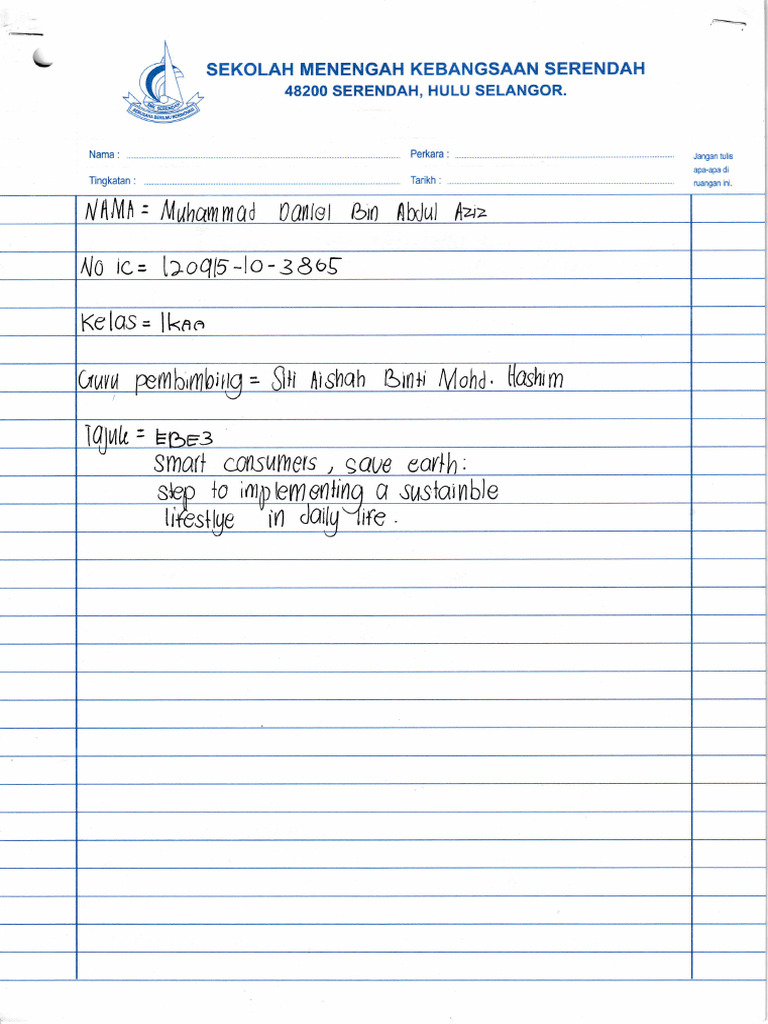 SEKOLAH MENENGAH KEBANGSAAN SERENDAH
48200 SERENDAH, HULU SELANGOR.
SMK SERENDAH
Nama : Perkara : Jangan tulis
apa-apa di
Tingkatan : Tarikh : ruangan ini.
NAMA = Muhammad Daniel Bin Abdul Aziz
No ic = 120915-10-3865
Kelas = 1KAA
Guru pembimbing = Siti Aishah Binti Mohd. Hashim
Tajuk = EBE3
smart consumers, save earth:
step to implementing a sustainble
lifestlye in daily life.